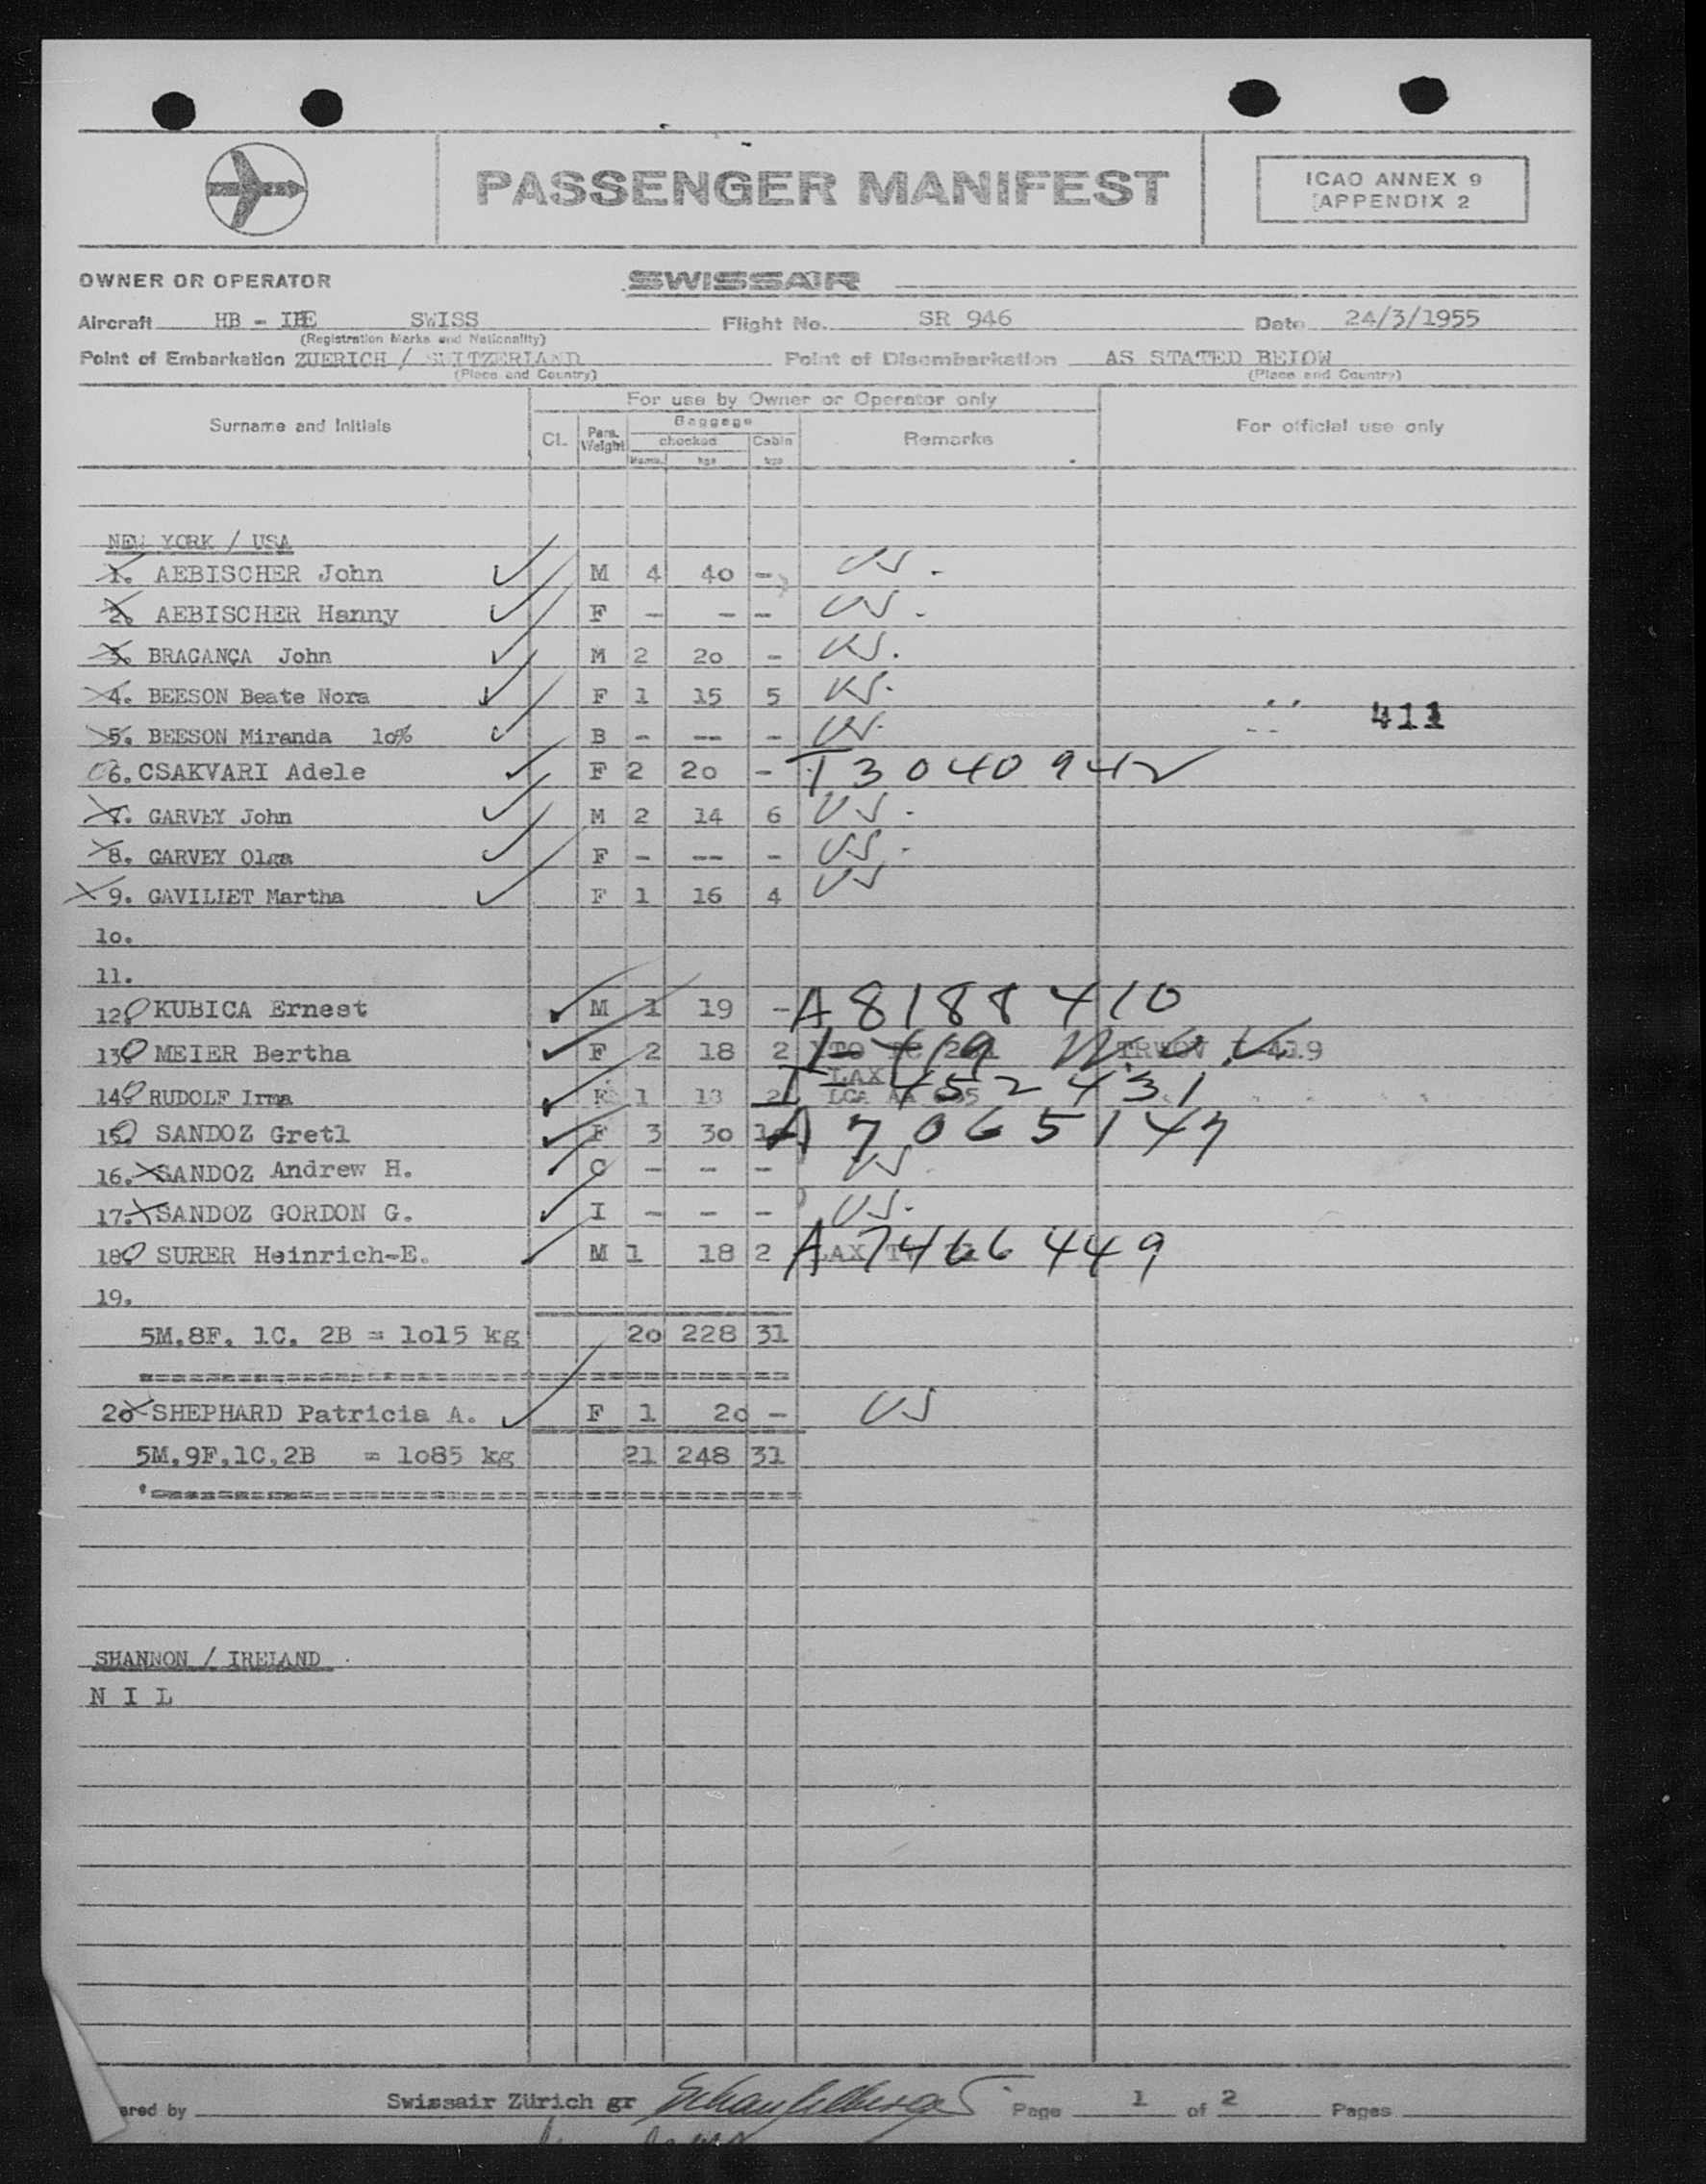 PASSENGER MANIFEST
ICAO ANNEX 9
APPENDIX 2
OWNER OR OPERATOR SWISSAIR
Aircraft HB - SWISS Flight No. SR 946 Date 24/3/1955
(Registration Marks and Nationality)
Point of Embarkation ZUERICH / SWITZERLAND Point of Disembarkation AS STATED BELOW
(Place and Country) (Place and Country)
For use by Owner or Operator only
Surname and Initials Cl. Pass. Weight Baggage checked Cabin Remarks For official use only
kgs kgs
NEW YORK / USA
1. AEBISCHER John M 4 4o - US.
2. AEBISCHER Hanny F - - - US.
3. BRAGANÇA John M 2 2o - US.
4. BEESON Beate Nora F 1 15 5 US.
411
5. BEESON Miranda 1o% B - -- - US.
6. CSAKVARI Adele F 2 2o - T3040942
7. GARVEY John M 2 14 6 US.
8. GARVEY Olga F - -- - US.
9. GAVILIET Martha F 1 16 4 US
1o.
11.
12. KUBICA Ernest M 1 19 - A8188410
13. MEIER Bertha F 2 18 2
LAX
14. RUDOLF Irma 1 2
15. SANDOZ Gretl F 3 3o A7065147
16. SANDOZ Andrew H. C - - - US
17. SANDOZ GORDON G. I - - - US.
18. SURER Heinrich-E. M 1 18 2 LAX A7466449
19.
5M.8F. 1C. 2B = 1o15 kg 2o 228 31
2o SHEPHARD Patricia A. F 1 2o - US
5M.9F.1C.2B = 1o85 kg 21 248 31
SHANNON / IRELAND
N I L
ared by Swissair Zürich gr Page 1 of 2 Pages